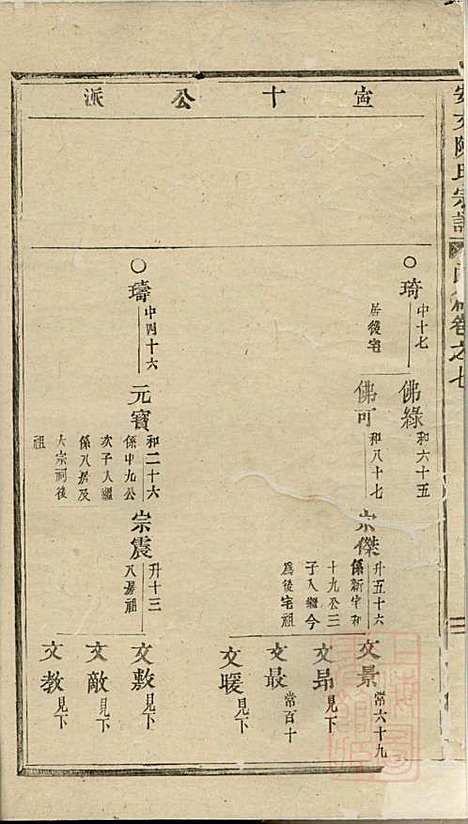 安文陳氏宗譜
卷之七
宙十公派
○琦
中十七
居後宅
佛綠
和六十五
佛可
和八十七
宗傑
升五十六
係新宅和
十九公三
子入繼今
爲後宅祖
文景
常六十九
文昻
見下
文最
常百十
文暖
見下
○璹
中四十六
元寶
和二十六
係中九公
次子入繼
係八房及
大宗祠後
祖
宗震
升十三
八房祖
文敷
見下
文敵
見下
文教
見下